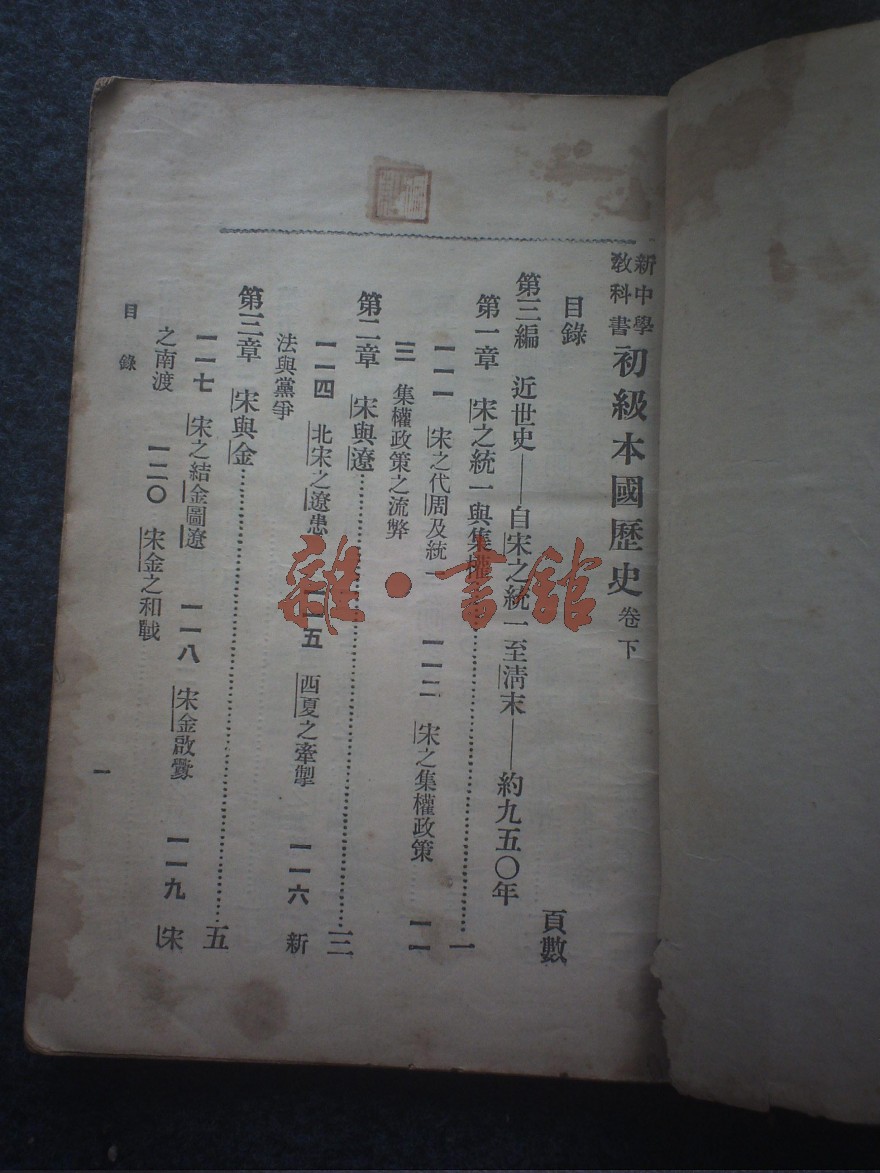 新中學教科書 初級本國歷史 卷下
目錄
頁數
第三編 近世史——自宋之統一至清末——約九五〇年
第一章 宋之統一與集權……一
一一一 宋之代周及統一 一一二 宋之集權政策 一一
三 集權政策之流弊
第二章 宋與遼……三
一一四 北宋之遼患 一一五 西夏之牽掣 一一六 新
法與黨爭
第三章 宋與金……五
一一七 宋之結金圖遼 一一八 宋金啟釁 一一九 宋
之南渡 一二〇 宋金之和戰
目錄
一
雜·書館